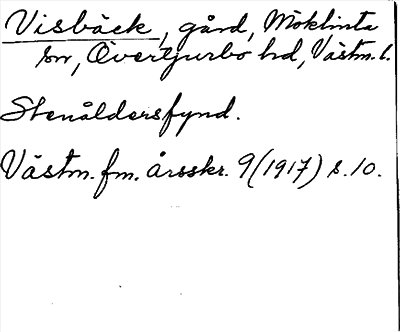 Visbäck, gård, Möklinta
sn, Övertjurbo hd, Västm. l.
Stenåldersfynd.
Västm. fm. årsskr. 9 (1917) s. 10.